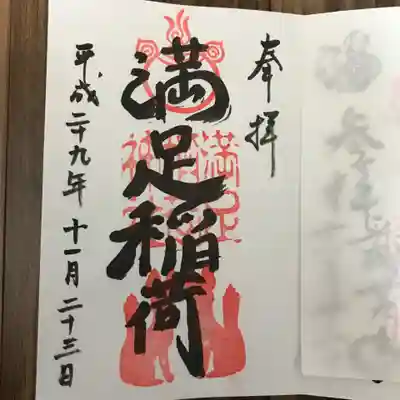 奉拝
満足稲荷
平成二十九年 十一月 二十三日